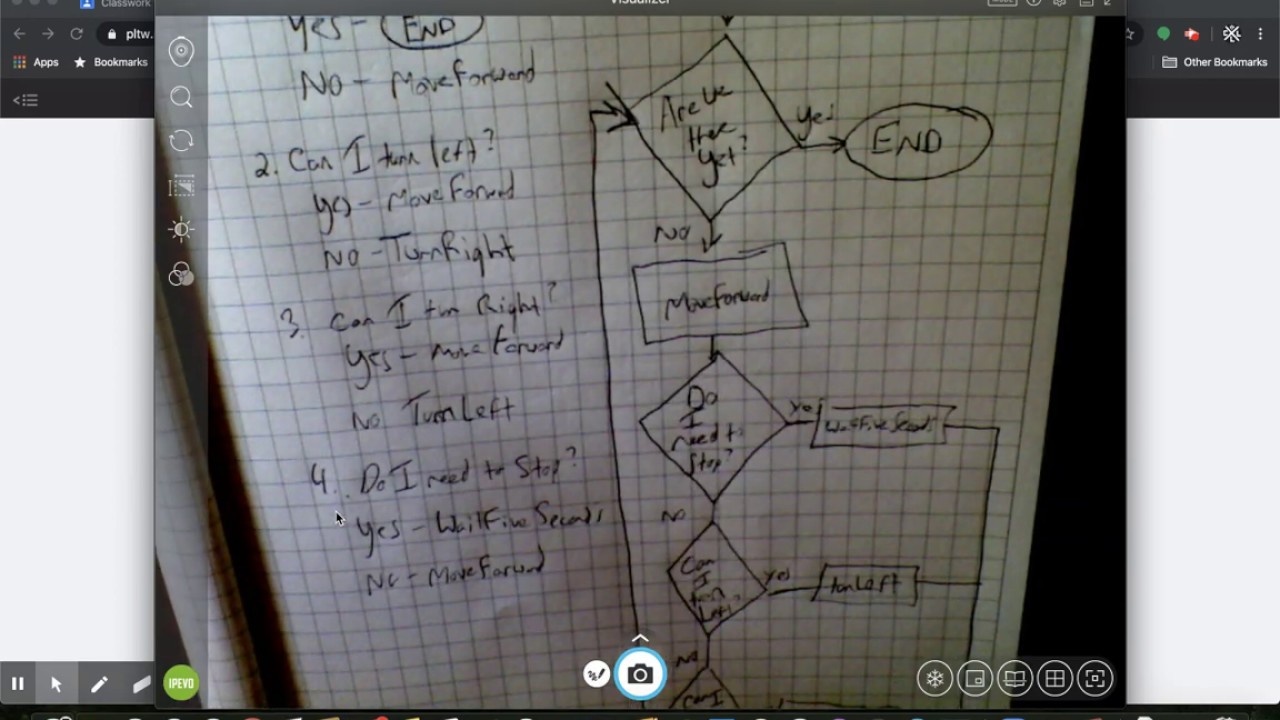 Classwork
Visualizer
pltw.
Apps
Bookmarks
Other Bookmarks
Yes - END
No - MoveForward
2. Can I turn left?
yes - MoveForward
No - TurnRight
3. Can I turn Right?
Yes - MoveForward
No TurnLeft
4. Do I need to Stop?
yes - WaitFiveSeconds
No - MoveForward
Are we
there
yet?
yes
END
No
MoveForward
Do
I
need to
Stop?
yes
WaitFiveSeconds
No
Can
I
turn
Left?
yes
turnLeft
No
Can I
IPEVO